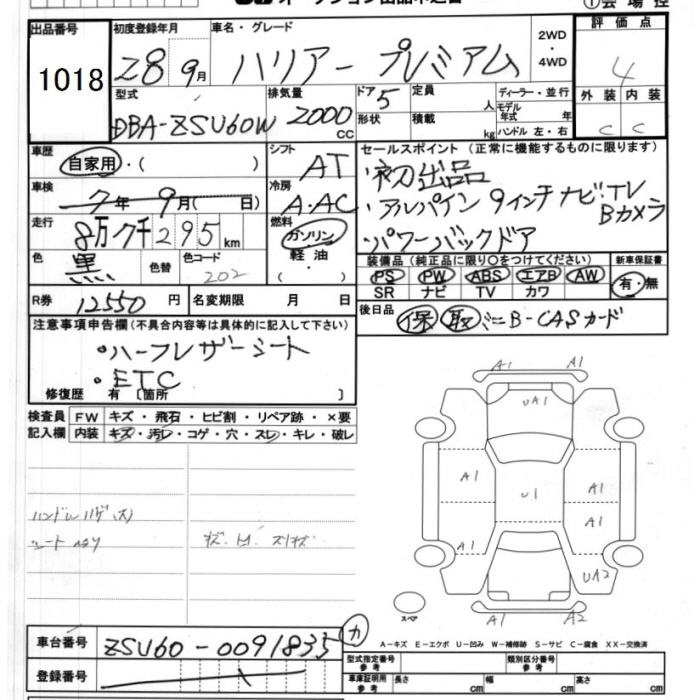 出品番号 初度登録年月 車名・グレード 2WD・4WD 評価点
1018 28 9月 ハリアー プレミアム 4
型式 排気量 ドア 5 定員 人 ディーラー・並行 外装 内装
DBA-ZSU60W 2000 CC 形状 積載 kg モデル年式 年 ハンドル 左・右 C C
車歴 シフト セールスポイント (正常に機能するものに限ります)
自家用・( ) AT ・初出品
車検 冷房 ・アルパイン 9インチ ナビ TV
7年 9月( 日) A・AC Bカメラ
走行 燃料 ・パワーバックドア
8万7千295km ガソリン
色 色替 色コード 軽油・ 装備品 (純正品に限り○をつけてください) 新車保証書
黒 202 ( ) PS PW ABS エアB AW 有・無
SR ナビ TV カワ
R券 12550円 名変期限 月 日 後日品 保 取 ミニB-CASカード
注意事項申告欄 (不具合内容等は具体的に記入して下さい)
・ハーフレザーシート
・ETC
修復歴 有 〔箇所 〕
検査員 FW キズ・飛石・ヒビ割・リペア跡・×要
記入欄 内装 キズ・汚レ・コゲ・穴・スレ・キレ・破レ
A1 A1
UA1
A1 U1 A1
A1
A1
UA2
A1 A2
スペア
A-キズ E-エクボ U-凹み W-補修跡 S-サビ C-腐食 XX-交換済
車台番号 ZSU60-0091835 カ
登録番号
型式指定番号 参考 類別区分番号 参考
車庫証明用 参考 長さ cm 幅 cm 高さ cm